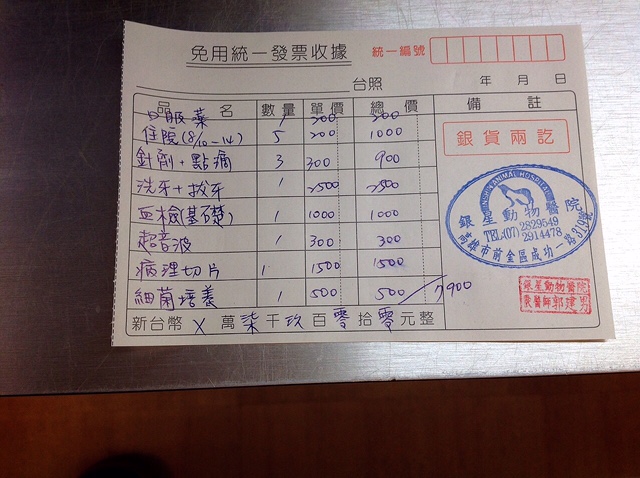 免用統一發票收據 統一編號
台照 年 月 日
品 名 數量 單價 總 價 備 註
口服藥 1 200 200
住院(8/10-14) 5 200 1000
針劑+點滴 3 300 900
洗牙+拔牙 1 2500 2500
血檢(基礎) 1 1000 1000
超音波 1 300 300
病理切片 1 1500 1500
細菌培養 1 500 500 7900
新台幣 X 萬 柒 千 玖 百 零 拾 零 元整
銀貨兩訖
ANIMAL HOSPITAL
銀星動物醫院
TEL:(07) 2829549
2914478
高雄市前金區成功一路319號
銀星動物醫院
獸醫師郭建男